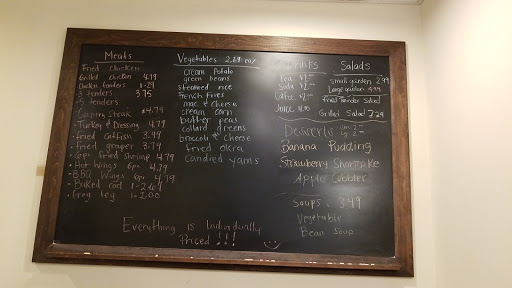 Meats
Fried chicken
Grilled chicken 4.79
Chicken tenders 1.29
3 tenders 3.75
5 tenders
Cubin Steak $4.79
Turkey & Dressing 4.79
fried catfish 3.49
fried grouper 3.79
fried shrimp 4.79
Hot Wings 6pc 4.79
B.B.Q Wings 6pc 4.79
Baked cod 1-2.49
frog leg 1-2.00
Vegetables
cream potato
green beans
steamed rice
french fries
mac & cheese
cream corn
butter peas
collard greens
broccoli & cheese
fried okra
candied yams
Drinks
Tea
Soda
Coffee
Juice
Salads
Small garden 2.99
Large garden 4.99
Fried Tender Salad
Grilled Salad 7.29
Desserts
Banana Pudding
Strawberry Shortcake
Apple Cobbler
Soups 3.49
Vegetable
Bean Soup
Everything is Individually
Priced !!!